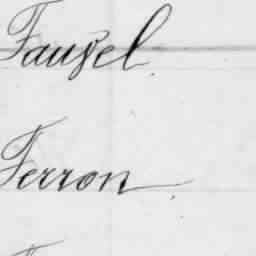 Fausel.
Ferron.